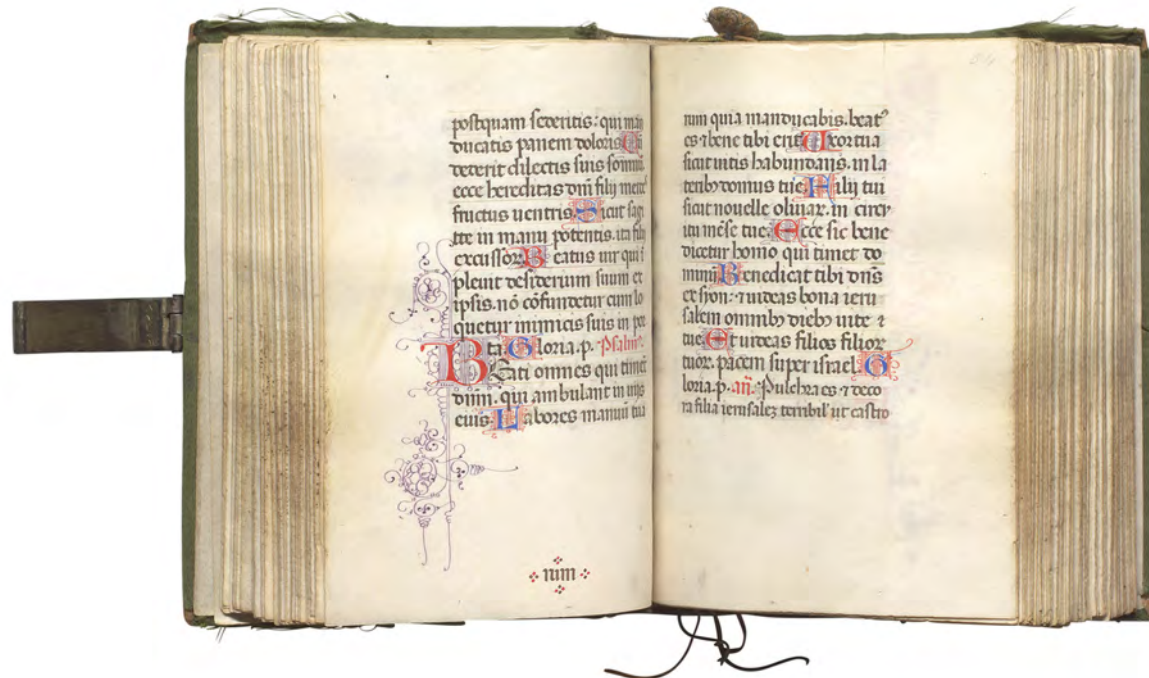 postquam sederitis: qui man
ducatis panem doloris. Cũ
dederit dilectis suis somnũ.
ecce hereditas dñi filij merce
fructus uentris. Sicut sagi
tte in manu potentis. ita filij
excussoꝝ. Beatus uir qui ĩ
pleuit desiderium suum ex
ipsis. nõ cõfundetur cum lo
quetur inimicis suis in por
ta. Gloria. p. Psalm
Beati omnes qui timẽt
dñm. qui ambulant in uijs
eius. Labores manuũ tua
num
rum quia manducabis. beatꝰ
es ⁊ bene tibi erit. Uxor tua
sicut uitis habundans. in la
teribꝫ domus tue. Filij tui
sicut nouelle oliuaꝝ. in circu
itu mẽse tue. Ecce sic bene
dicetur homo qui timet do
minũ. Benedicat tibi dñs
ex syon: ⁊ uideas bona ieru
salem omnibꝫ diebꝫ uite
tue. Et uideas filios filioꝝ
tuoꝝ. pacem super israel. G
loria. p. añ. Pulchra es ⁊ deco
ra filia ierusaleꝫ terribil' ut castro